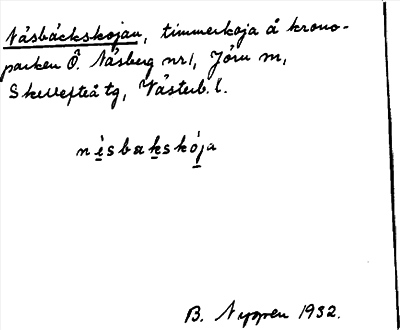 Näsbäckskojan, timmerkoja å krono-
parken Ö. Näsberg nr1, Jörn m,
Skellefteå tg, Västerb. l.
nèsbakskója
B. Nygren 1932.